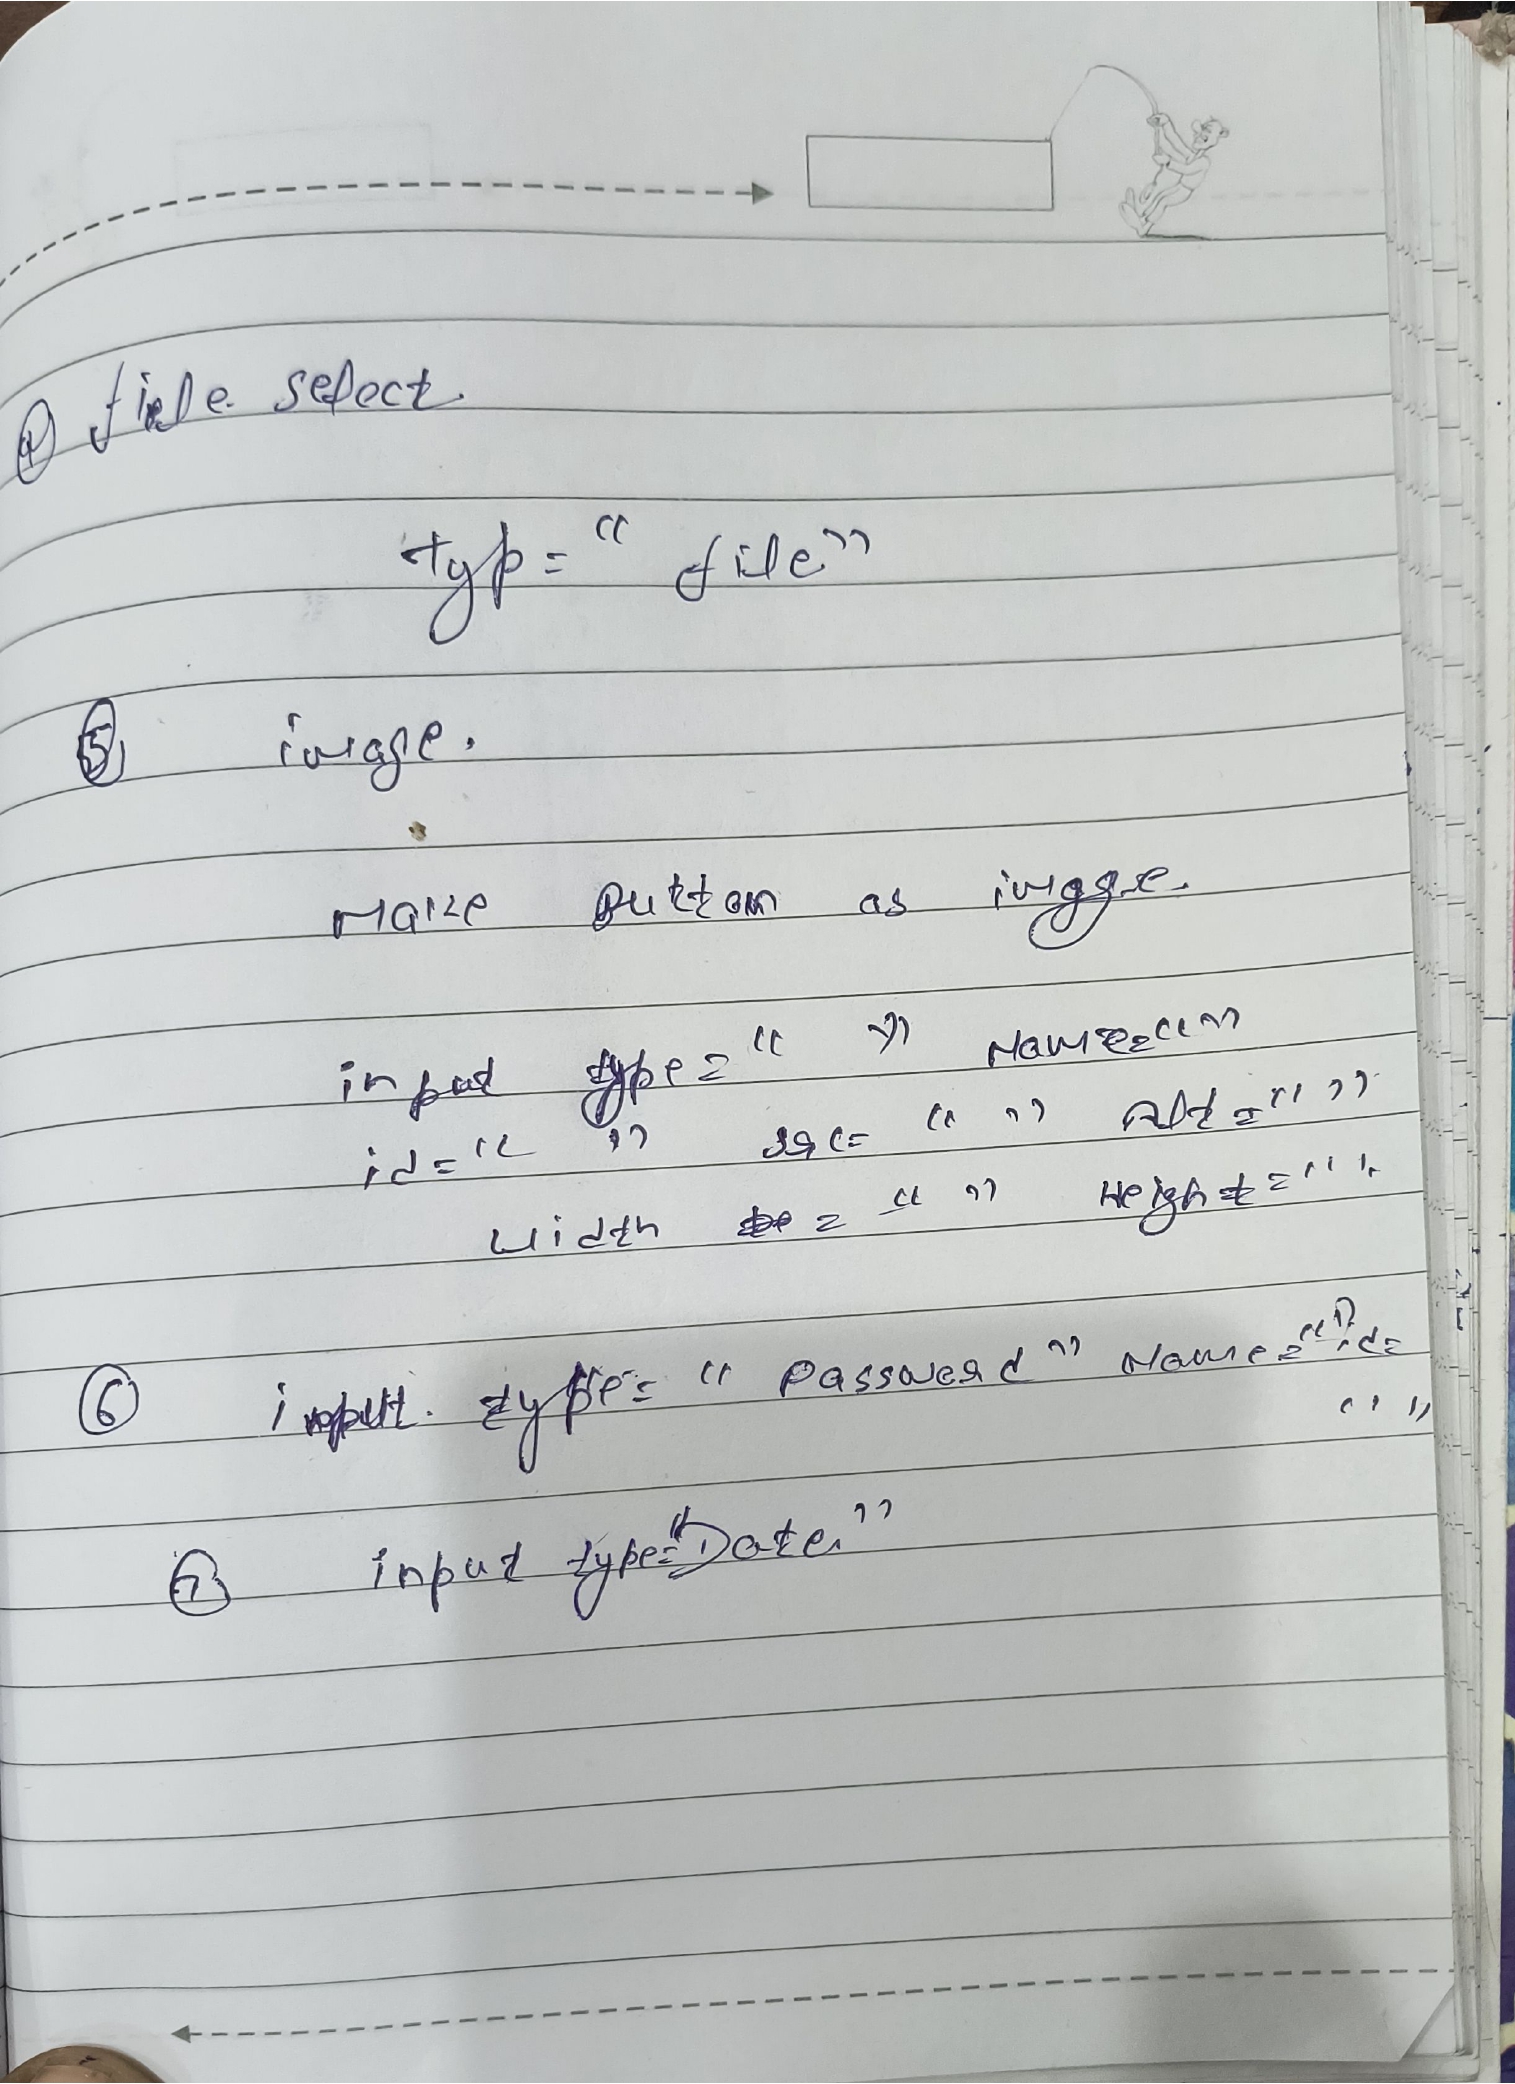 ④ file select.
typ = " file "
⑤ image.
Make Button as image.
input type = " " Name = " "
id = " " src = " " Alt = " "
Width = " " Height = " "
⑥ input. type = " Password " Name = " " id =
" "
⑦ input type = " Date "